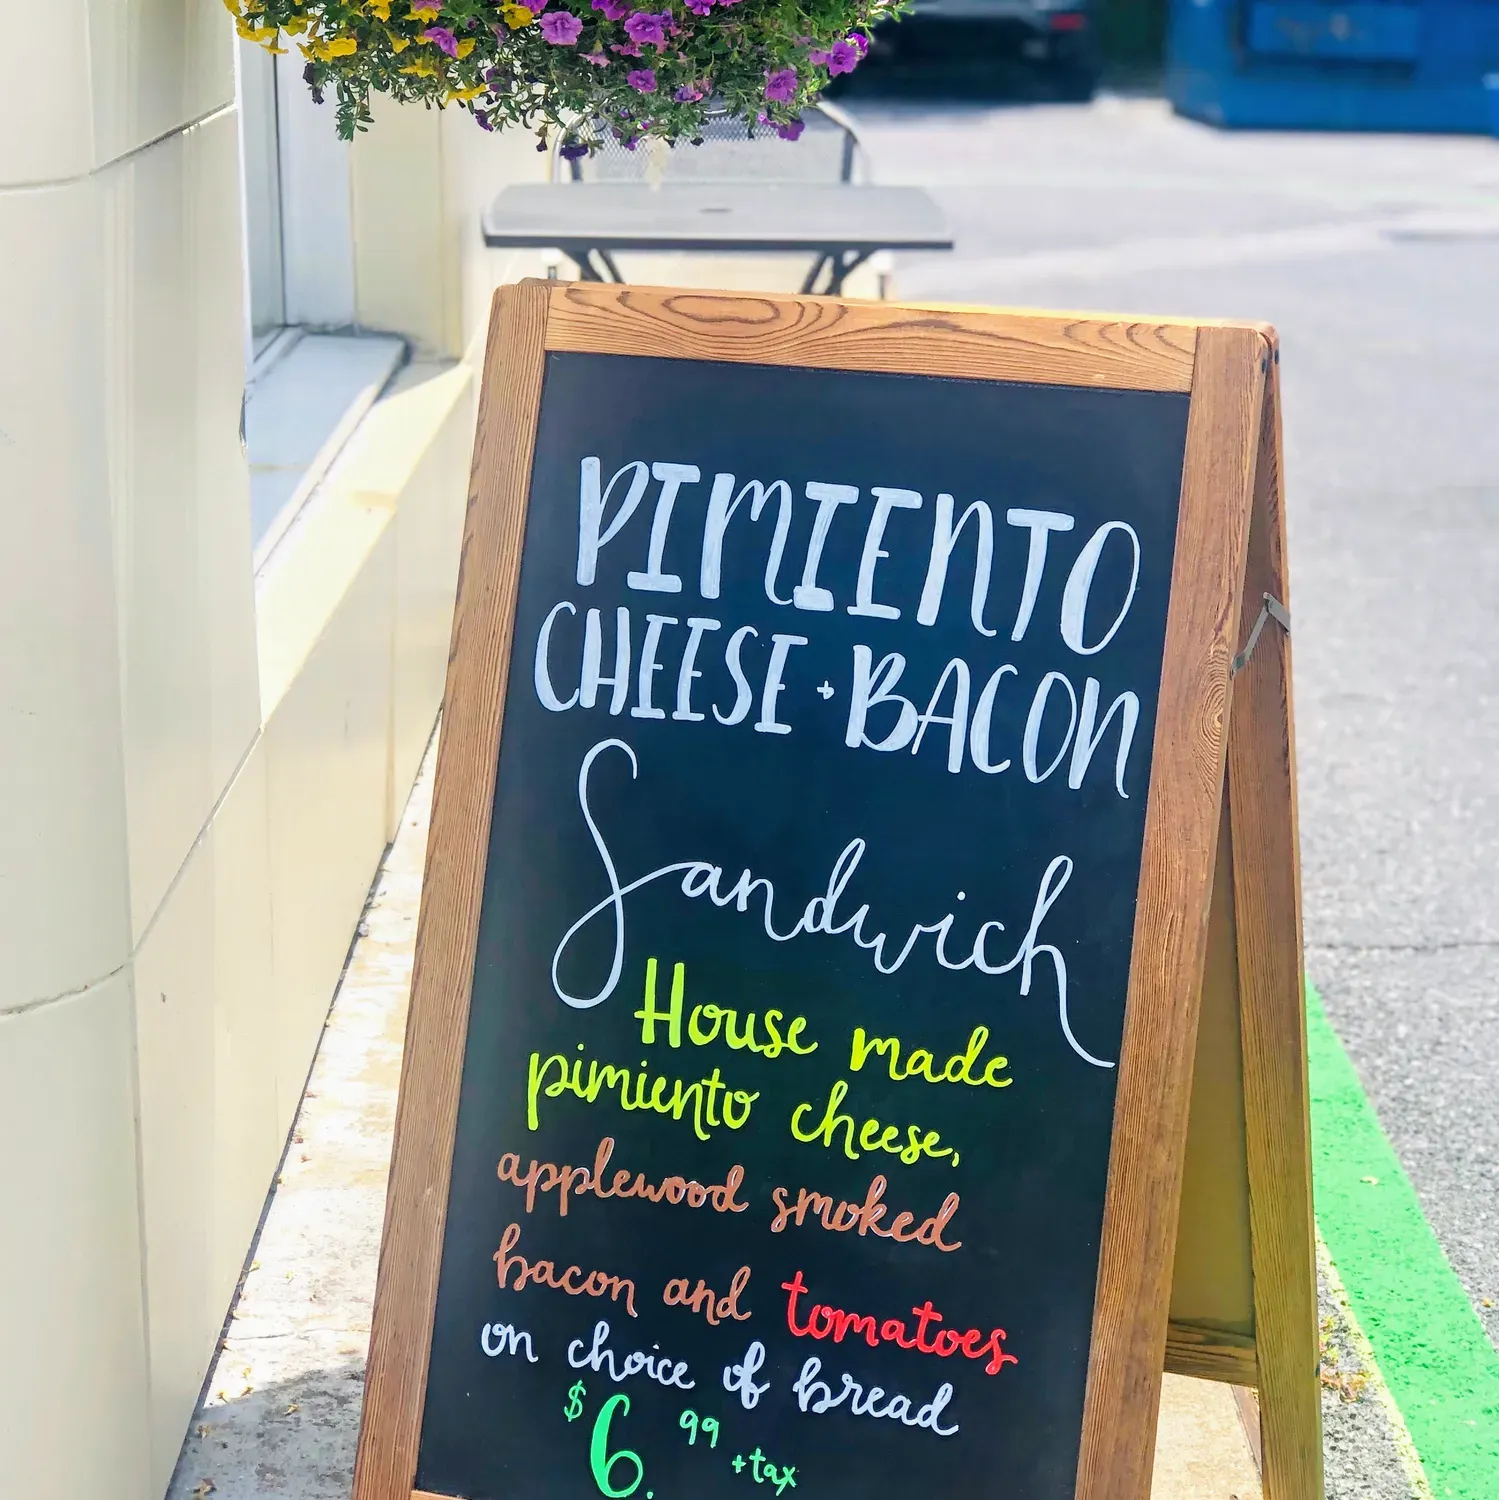 PIMIENTO
CHEESE + BACON
Sandwich
House made
pimiento cheese,
applewood smoked
bacon and tomatoes
on choice of bread
$6.99 +tax